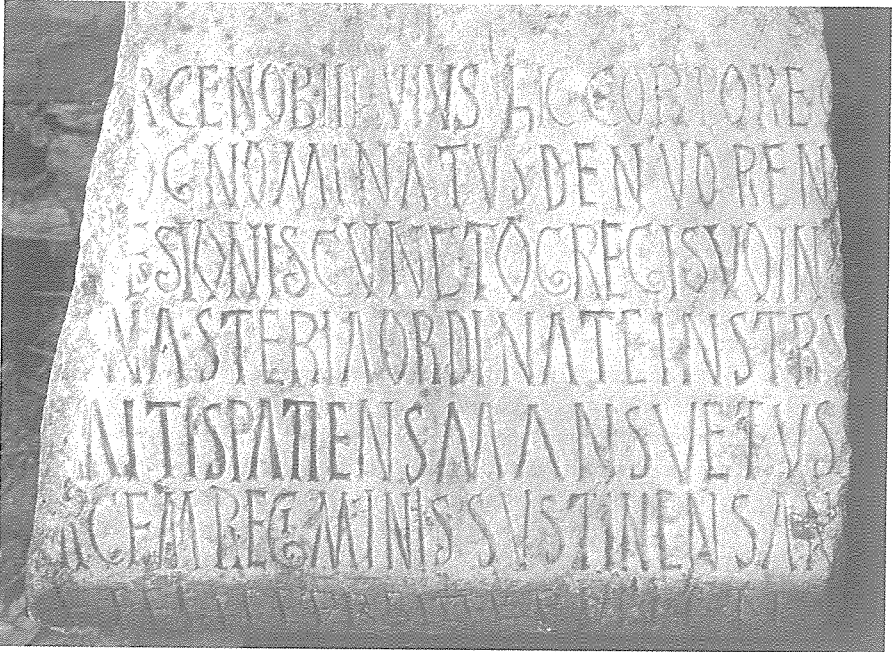 RCENOBII HVIVS HIC CORPORE
OGNOMINATVSDENVOREN
SSIONISCVNCTOGREGISVOIN
NASTERIAORDINATEINSTRV
MITISPATIENSMANSVETVS
RCEMREGIMINISSVSTINENSAN